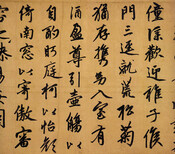 僮僕歡迎稚子候
門三逕就荒松菊
猶存攜幼入室有
酒盈尊引壺觴以
自酌眄庭柯以怡顏
倚南窗以寄傲審